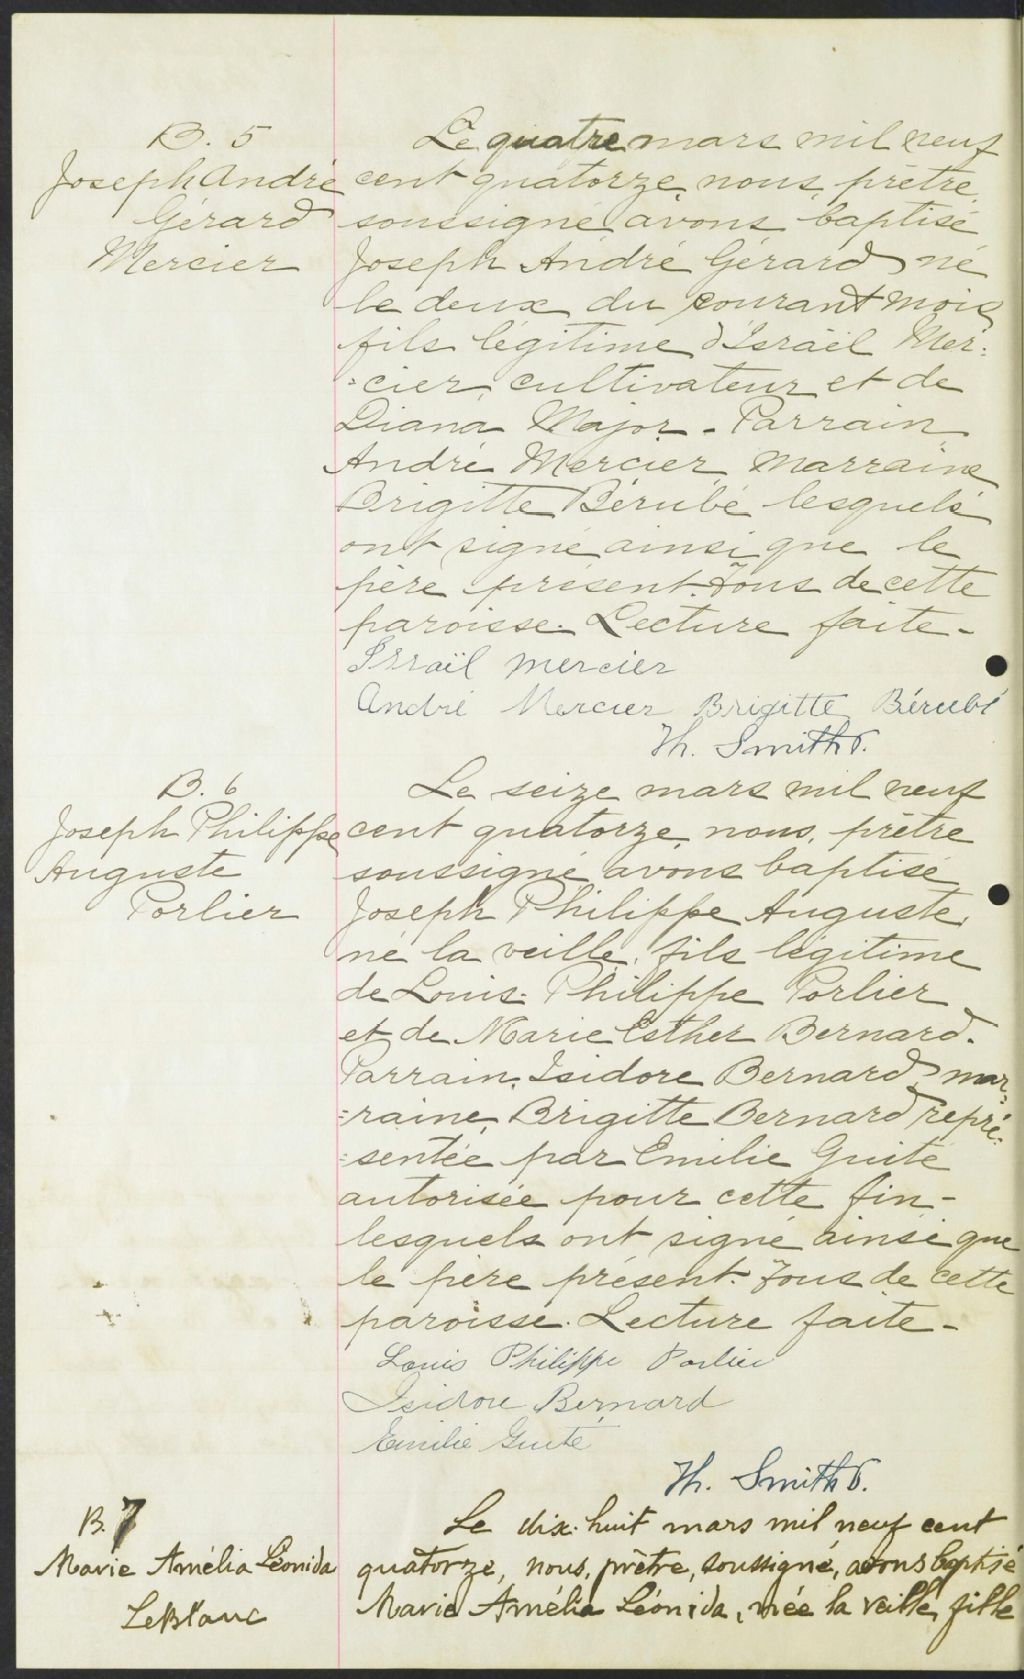 B. 5
Joseph André
Gérard
Mercier
Le quatre mars mil neuf
cent quatorze, nous, prêtre
soussigné, avons baptisé
Joseph André Gérard né
le deux du courant mois
fils légitime d'Israël Mer=
=cier, cultivateur et de
Diana Major - Parrain
André Mercier, marraine
Brigitte Bérubé lesquels
ont signé ainsi que le
père présent. Tous de cette
paroisse. Lecture faite -
Israïl Mercier
André Mercier Brigitte Bérubé
Th. Smith P.
B. 6
Joseph Philippe
Auguste
Porlier
Le seize mars mil neuf
cent quatorze, nous, prêtre
soussigné, avons baptisé
Joseph Philippe Auguste,
né la veille, fils légitime
de Louis-Philippe Porlier
et de Marie Esther Bernard.
Parrain, Isidore Bernard, mar=
=raine, Brigitte Bernard repré=
=sentée par Emilie Guité
autorisée pour cette fin -
lesquels ont signé ainsi que
le père présent. Tous de cette
paroisse. Lecture faite -
Louis Philippe Porlier
Isidore Bernard
Emilie Guité
Th. Smith P.
B. 7
Marie Amélia Léonida
LeBlanc
Le dix-huit mars mil neuf cent
quatorze, nous, prêtre, soussigné, avons baptisé
Marie Amélia Léonida, née la veille, fille